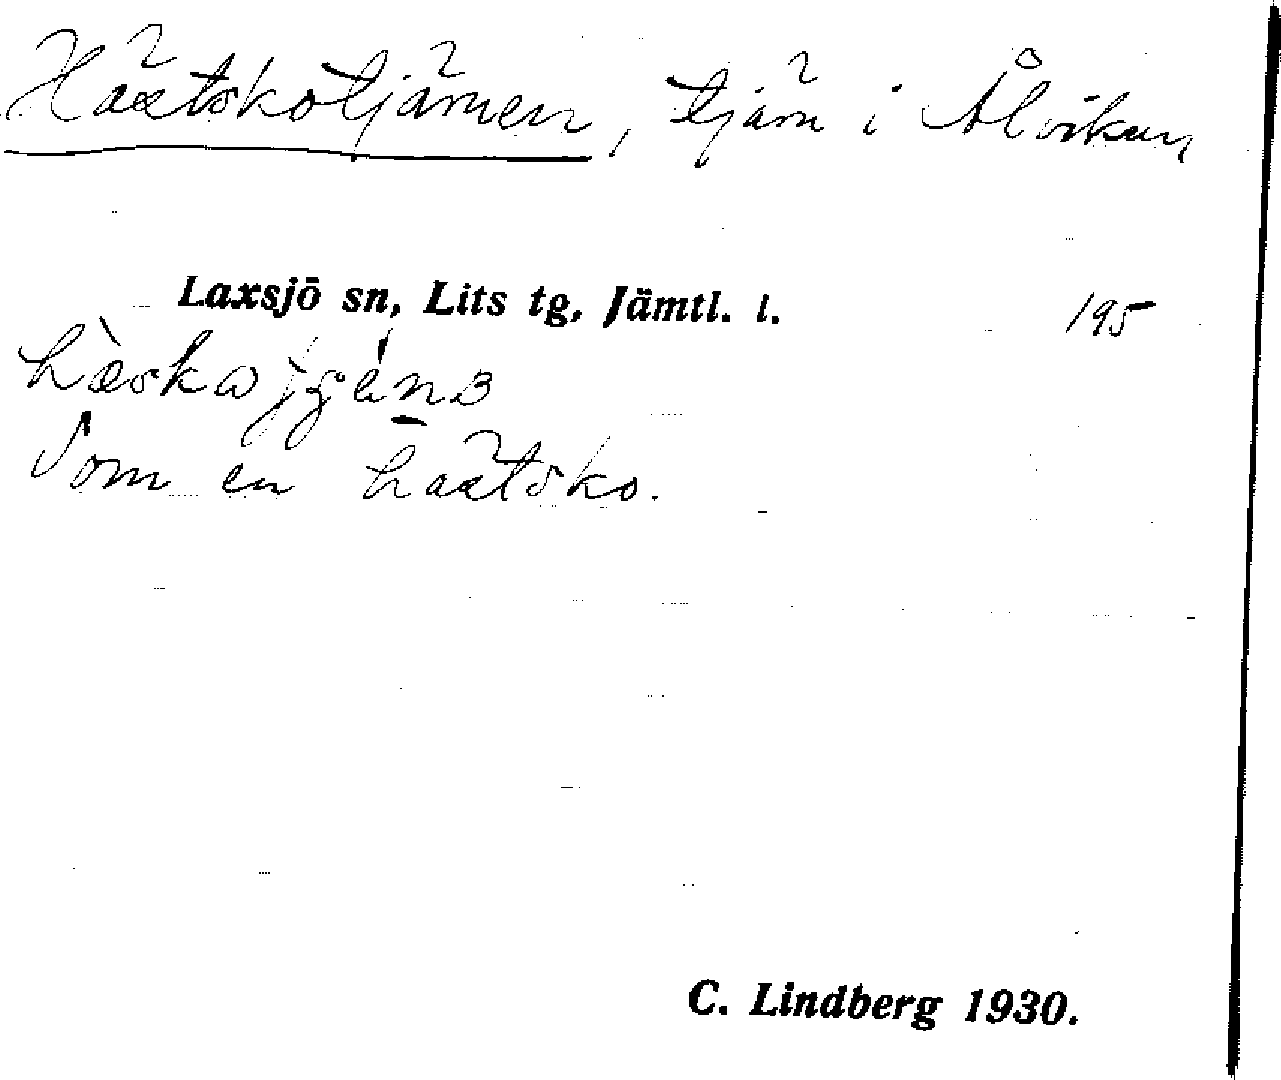 Hästskotjärnen, tjärn i Ålviken
Laxsjö sn, Lits tg, Jämtl. l. 195
Som en hästsko.
C. Lindberg 1930.